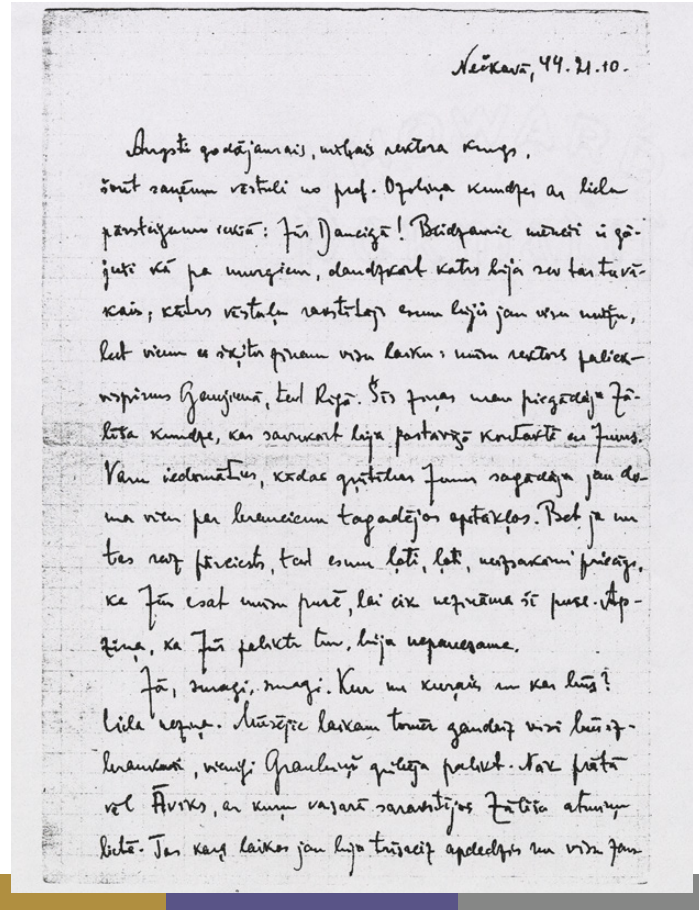 Nečkavā, 44.21.10.
Augsti godājamais, mīļais rektora kungs,
šorīt saņēmu vēstuli no prof. Ozoliņa kundzes ar lielu
pārsteigumu iekšā: Jūs Dancigā! Beidzamie mēneši ir gā-
juši kā pa murgiem, daudzkārt katrs bija sev tas tuvā-
kais, kūtrs vēstuļu rakstītājs esmu bijis jau visu mūžu,
bet vienu es šķitos zinām visu laiku: mūsu rektors paliek
vispirms Gaujienā, tad Rīgā. Šīs ziņas man piegādāja Zā-
līša kundze, kas savukārt bija pastāvīgā kontaktā ar Jums.
Varu iedomāties, kādas grūtības Jums sagādāja jau do-
ma vien par braucienu tagadējos apstākļos. Bet ja nu
tas reiz pārciests, tad esmu ļoti, ļoti, neizsakāmi priecīgs,
ka Jūs esat mūsu pusē, lai cik nezināma šī puse. Ap-
ziņa, ka Jūs palikts tur, bija nepanesama.
Jā, smagi, smagi. Kur nu kurais un kas būs?
Liela neziņa. Mūsējie laikam tomēr gandrīz visi būs iz-
braukuši, vienīgi Graubiņš gribēja palikt. Nāk prātā
vēl Āviks, ar kuru vasarā sarakstījos Zālīša atmiņu
lietā. Tas karg laikos jau bija trīsreiz apdedzis un visu